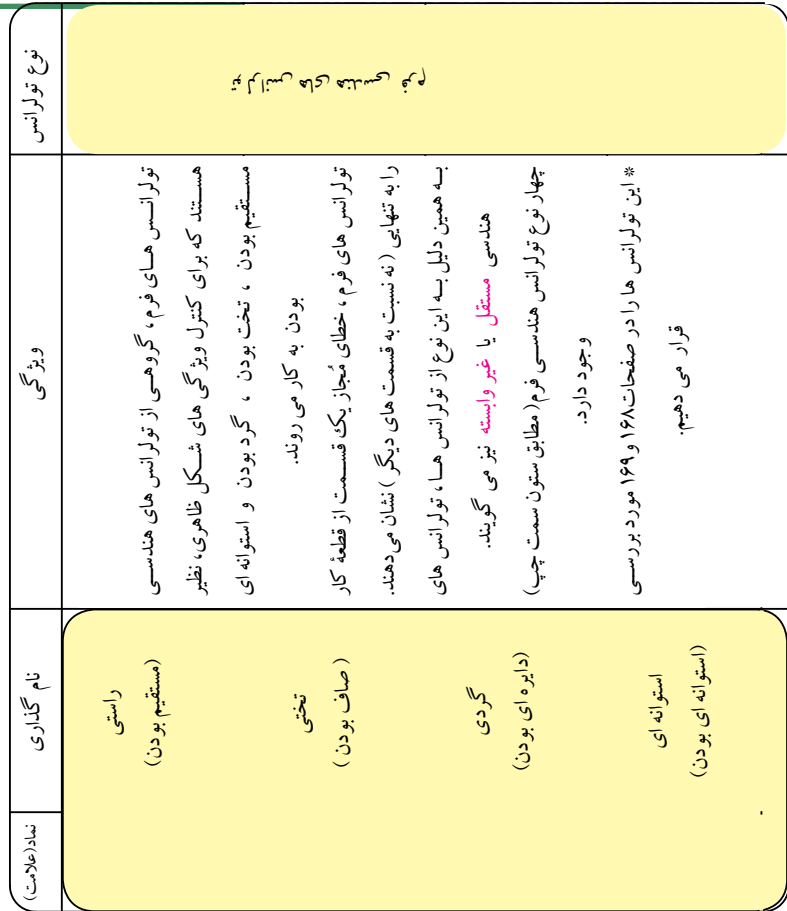 نوع تولرانس
ویژگی
نام گذاری
نماد(علامت)
تولرانس های هندسی فرم
تولرانس های فرم، گروهی از تولرانس های هندسی
هستند که برای کنترل ویژگی های شکل ظاهری، نظیر
مستقیم بودن ، تخت بودن ، گرد بودن و استوانه ای
بودن به کار می روند.
تولرانس های فرم، خطای مُجاز یک قسمت از قطعهٔ کار
را به تنهایی (نه نسبت به قسمت های دیگر) نشان می دهند.
به همین دلیل به این نوع از تولرانس ها، تولرانس های
هندسی مستقل یا غیر وابسته نیز می گویند.
چهار نوع تولرانس هندسی فرم(مطابق ستون سمت چپ)
وجود دارد.
* این تولرانس ها را در صفحات۱۶۸ و ۱۶۹ مورد بررسی
قرار می دهیم.
راستی
(مستقیم بودن)
تختی
( صاف بودن )
گردی
(دایره ای بودن)
استوانه ای
(استوانه ای بودن)